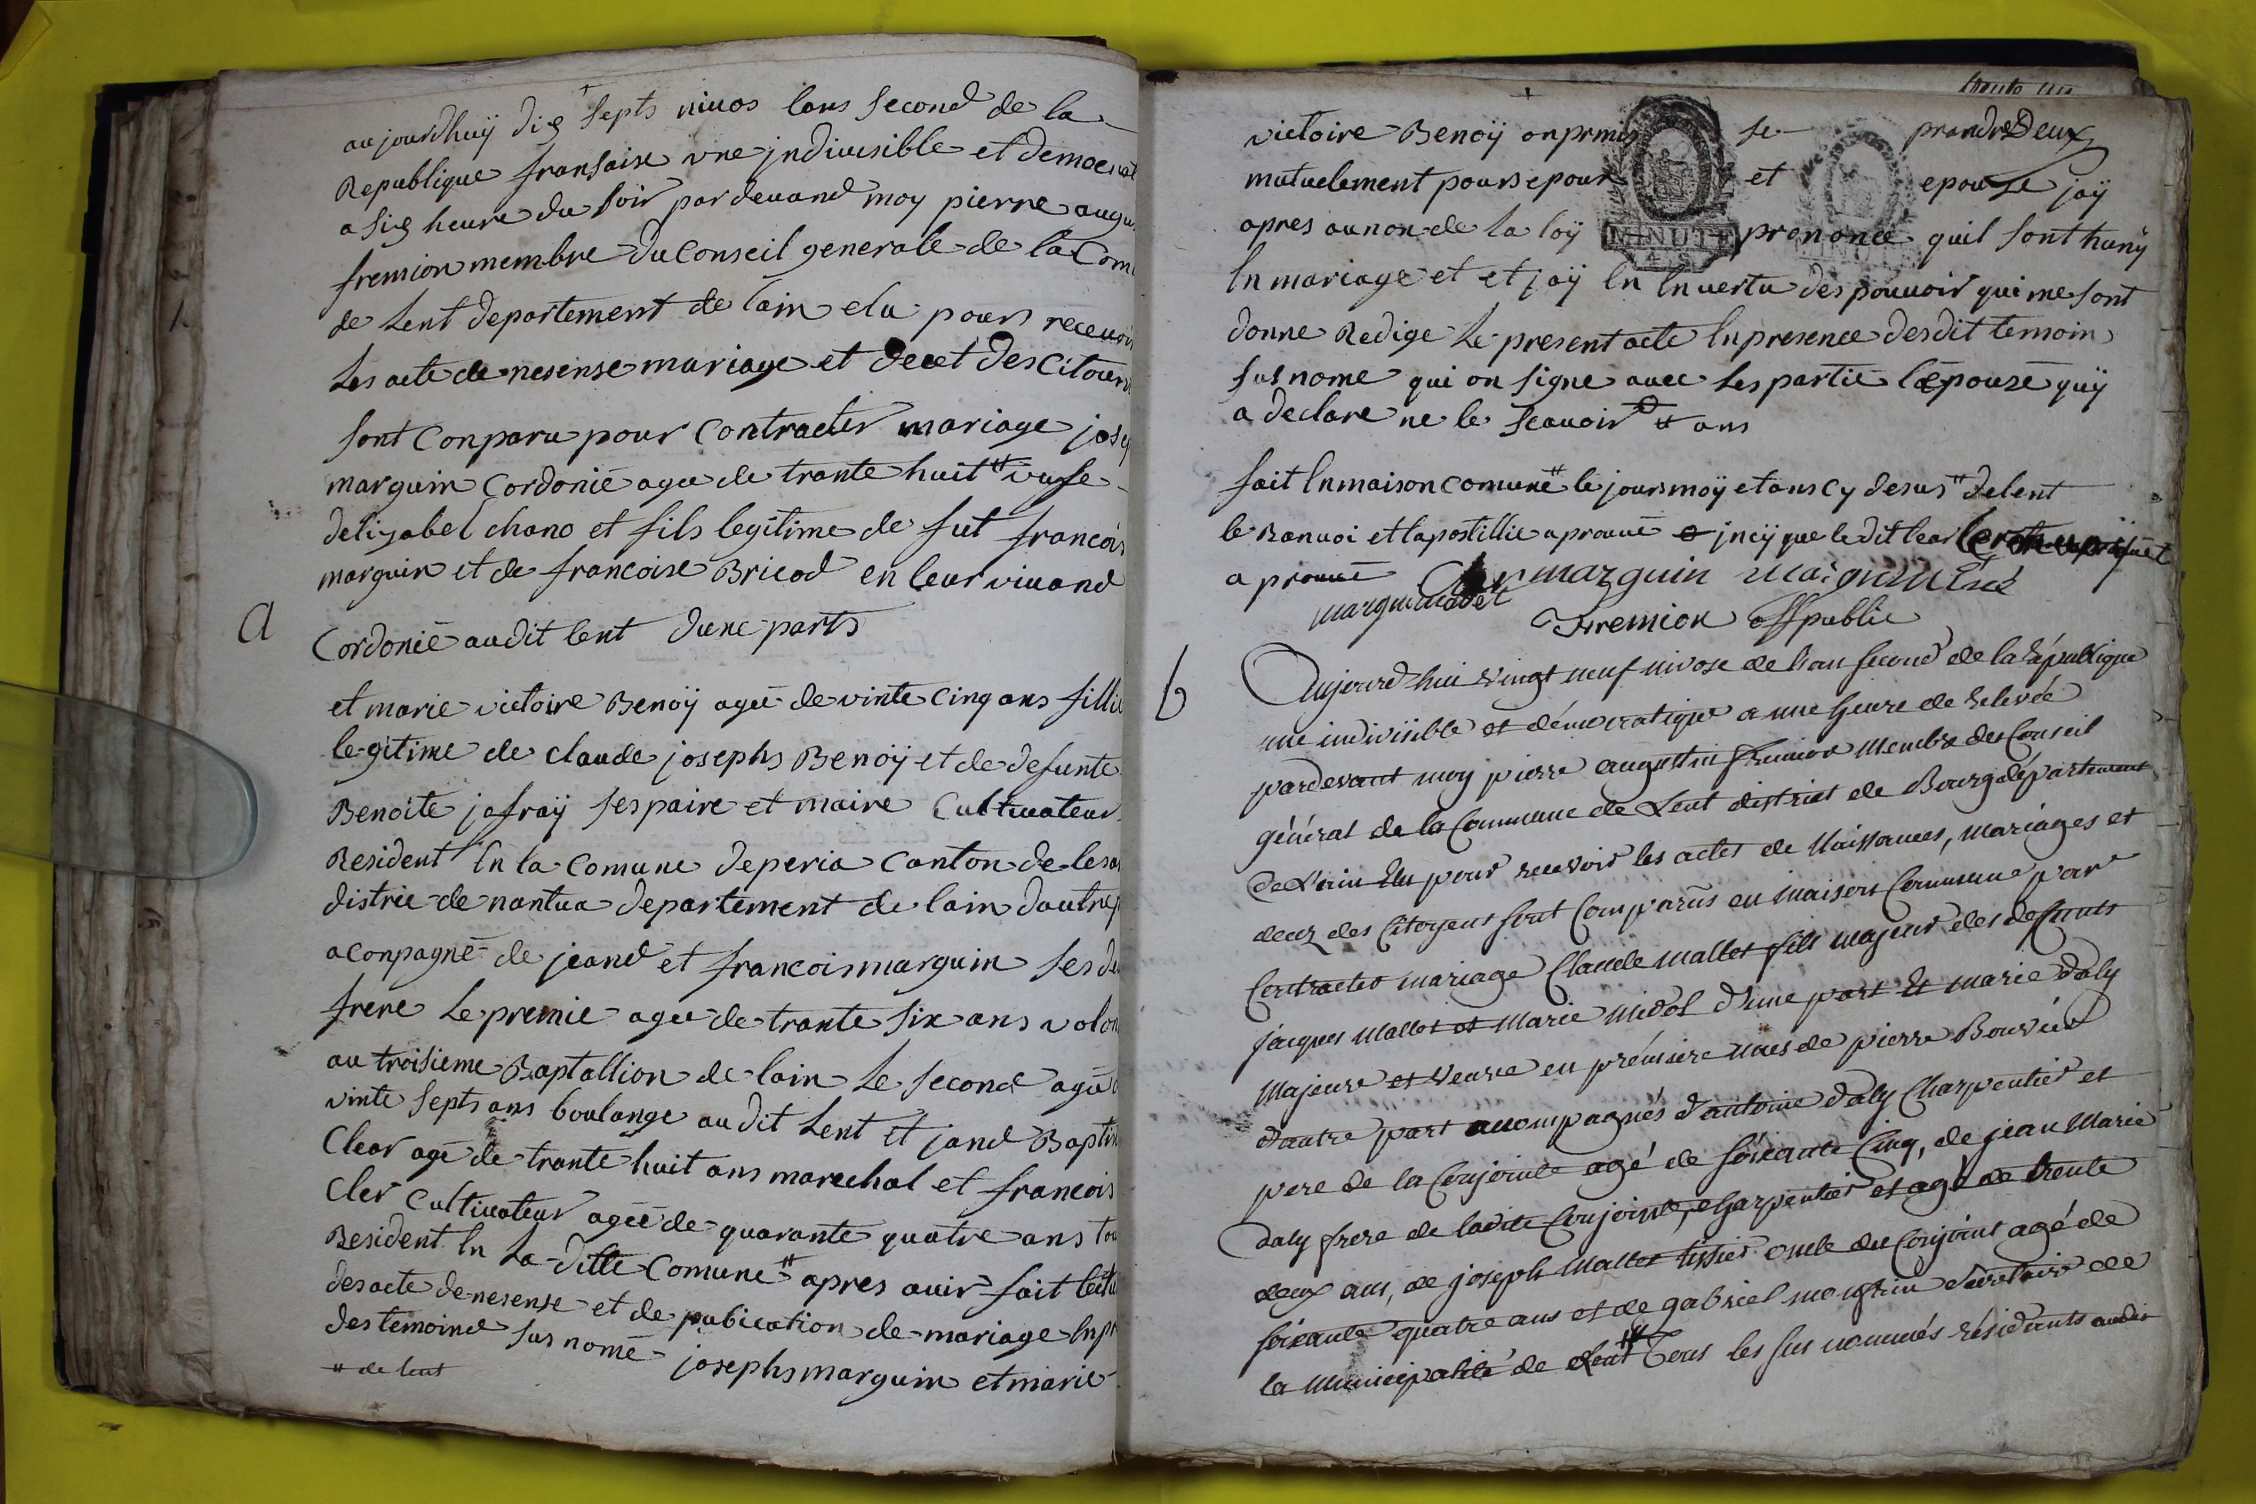 aujourdhuÿ dix septs nivos lans second de la
Republique fransaise vne jndivisible et democrat
a six heure du soir par devand moy pierre augus
fremion membre du Conseil generale de la Com
de Lent departement de lain elu pours recevoir
Les acte de nesense mariage et decet des Citoiens
sont Conparu pour Contracter mariage josep
marguin Cordonié agée de trante huit # veufe
delizabel chano et fils legitime de fut francois
marguin et de francoise Bricod en leur vivand
a
Cordonié audit lent dune parts
et marie victoire Benoÿ ageé de vinte cinq ans fillie
legitime de claude josephs Benoÿ et de defunte
Benoite jafraÿ ses paire et maire Cultivateur
Resident ln la Comune de peria Canton de
distric de nantua departement de lain dautre p
aconpagné de jeand et francois marguin ses deu
frere Le premie ageé de trante six ans volon
au troisieme Baptallion de lain Le second ageé
vinte septs ans boulange audit Lent et jand Baptis
Clear agé de trante huit ans marechal et francois
Cler Cultivateur ageé de quarante quatre ans tou
Resident ln La ditte Comune # apres avir fait lectu
des acte de nesense et de pubication de mariage ln pr
des temoind sus nomé josephs marguin et marie
# de lent
victoire Benoÿ on prmis se prandre Deux
mutuelement pours epour et epouze jaÿ
apres au non de la loÿ prononce quil sont hunÿ
MINUTE
ln mariage et et jaÿ ln ln vertu des pouvoir qui me sont
donne Redige Le present acte ln presence des dit temoin
sus nome qui on signe avec Les partie lépouze quÿ
a declare ne le scavoir # ans
fait ln maison comune # le jours moÿ et ans cy desus # de lent
le Ranvoi et lapostillie aprouvé jnciÿ que le dit lear
a prouvé marguin marguin
marguin cadet
Fremion off public
b
Aujourd'hui vingt neuf nivose de l'an second de la République
une indivisible et démocratique a une heure de relevée
pardevant moy pierre augustin fremion membre du Conseil
général de la Commune de Lent district de Bourg département
de L'ain Elu pour recevoir les actes de Naissances, mariages et
decez des Citoyens sont Comparus en maison Commune par
Contracter mariage Claude mallet fils majeur des defunts
jacques Mallet et Marie midol d'une part Et marie daly
Majeure et Veuve en prémiere noces de pierre Bouvier
d'autre part accompagnés d'antoine daly Charpentier et
pere de la Conjointe agé de soixante Cinq, de jean Marie
daly frere de ladite Conjointe, Charpentier et agé de trente
deux ans, de joseph Mallet tissier oncle du Conjoint agé de
soixante quatre ans et de gabriel monfrin secretaire de
la municipalité de Lent # Tous les sus nommés résidents audit